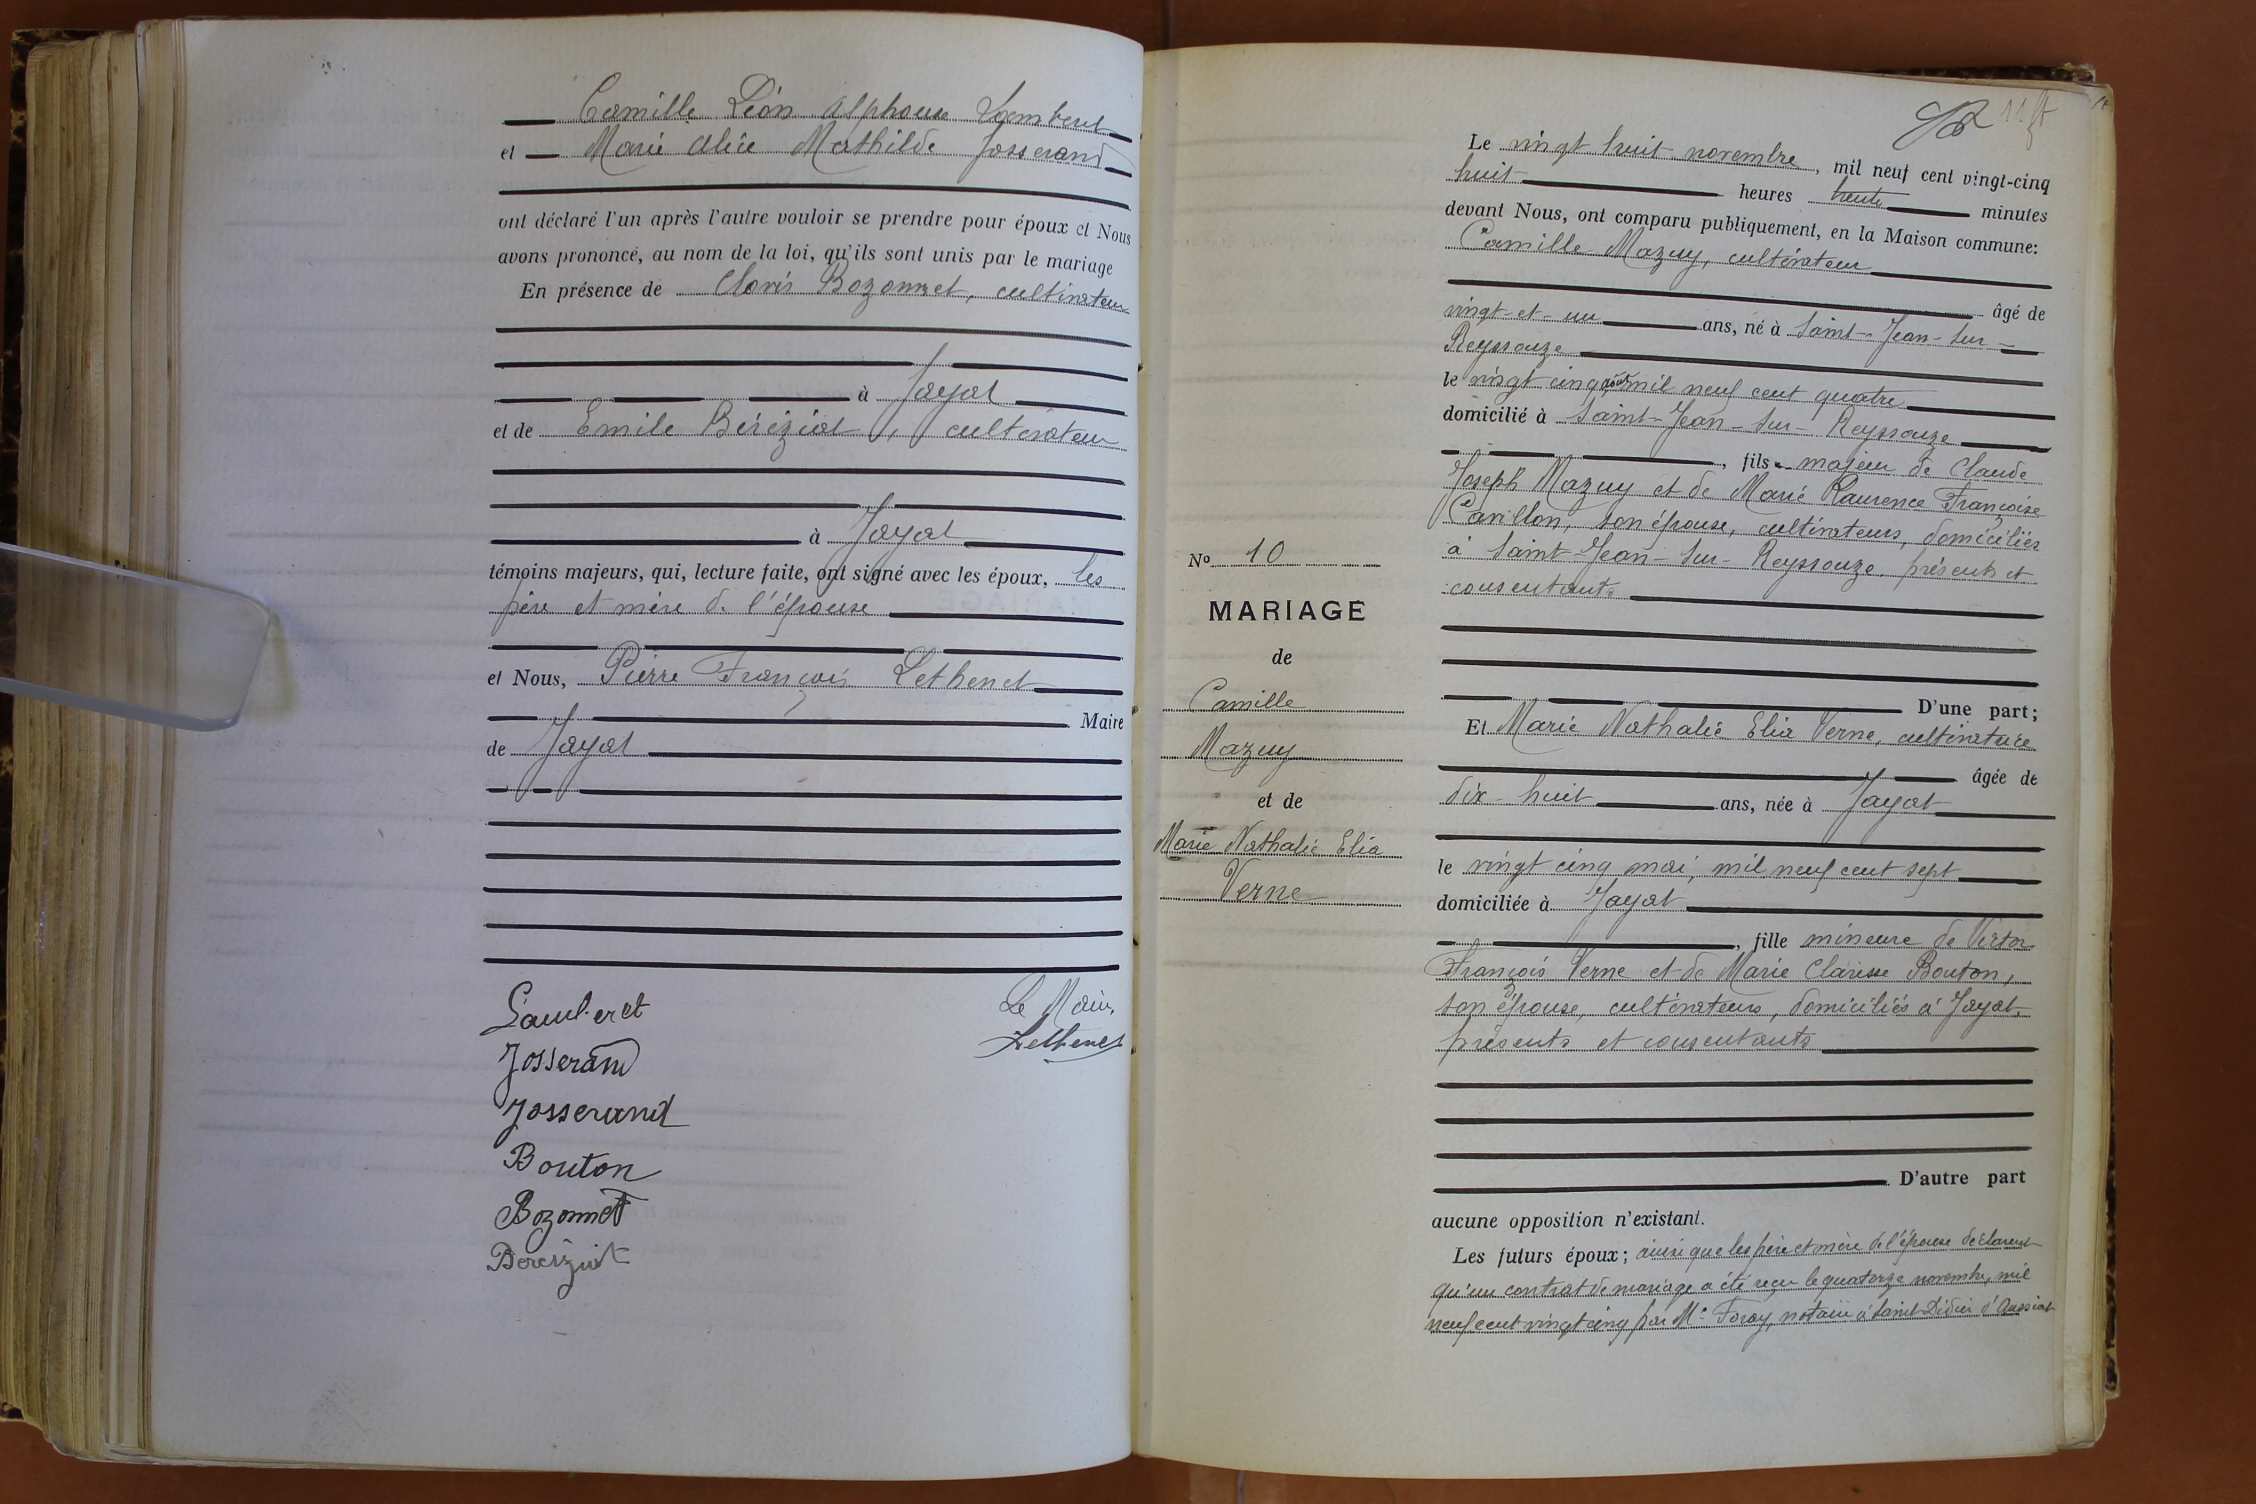 Camille Léon Alphonse Lamberet
et Marie Alice Mathilde Josserand
ont déclaré l'un après l'autre vouloir se prendre pour époux et Nous
avons prononcé, au nom de la loi, qu'ils sont unis par le mariage
En présence de Clovis Bozonnet, cultivateur
à Jayat
et de Emile Béréziat, cultivateur
à Jayat
témoins majeurs, qui, lecture faite, ont signé avec les époux, les
père et mère de l'épouse
et Nous, Pierre François Lethenet
Maire
de Jayat
Lamberet
Josserand
Josserand
Bouton
Bozonnet
Béréziat
Le Maire,
Lethenet
N° 10
MARIAGE
de
Camille
Mazuy
et de
Marie Nathalie Elia
Verne
Le vingt huit novembre, mil neuf cent vingt-cinq
huit heures trente minutes
devant Nous, ont comparu publiquement, en la Maison commune:
Camille Mazuy, cultivateur
âgé de
vingt-et-un ans, né à Saint-Jean-sur-
Reyssouze
le vingt cinq août mil neuf cent quatre
domicilié à Saint-Jean-sur-Reyssouze
, fils majeur de Claude
Joseph Mazuy et de Marie Laurence Françoise
Carillon, son épouse, cultivateurs, domiciliés
à Saint-Jean-sur-Reyssouze, présents et
consentants
D'une part;
Et Marie Nathalie Elia Verne, cultivatrice
âgée de
dix-huit ans, née à Jayat
le vingt cinq mai, mil neuf cent sept
domiciliée à Jayat
, fille mineure de Victor
François Verne et de Marie Clarisse Bouton,
son épouse, cultivateurs, domiciliés à Jayat,
présents et consentants
D'autre part
aucune opposition n'existant.
Les futurs époux; ainsi que les père et mère de l'épouse déclarent
qu'un contrat de mariage a été reçu le quatorze novembre, mil
neuf cent vingt cinq par Me Foray, notaire à Saint Didier d'Aussiat